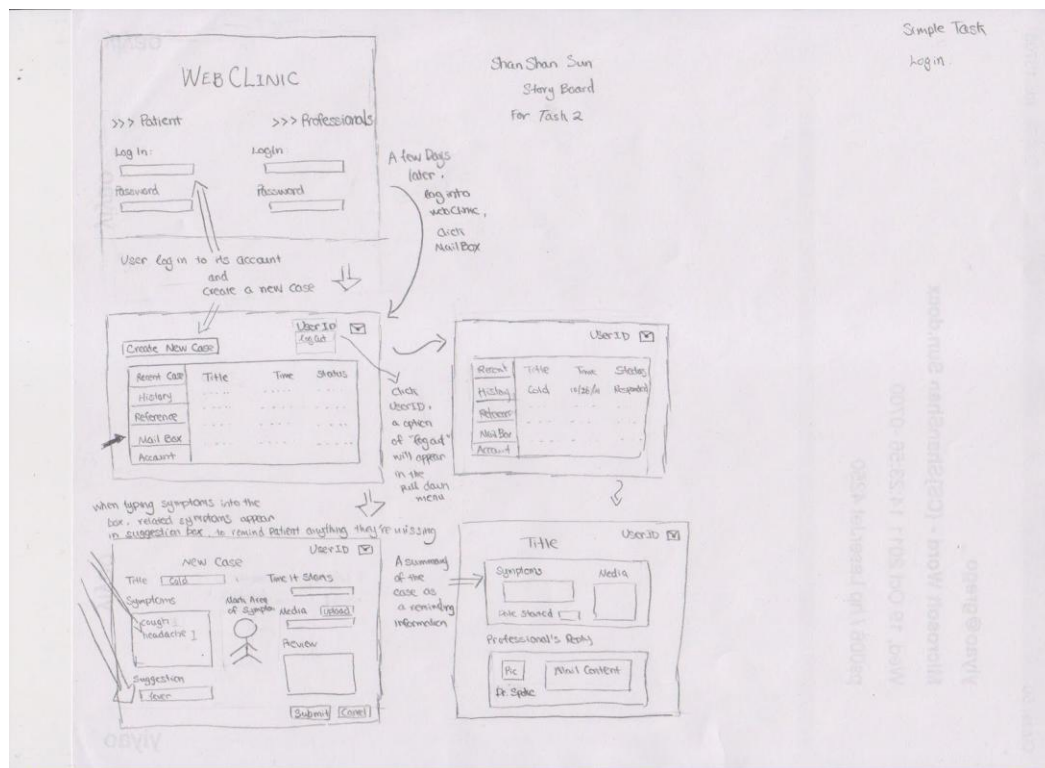 Simple Task
Login.
Shan Shan Sun
Story Board
For Task 2
WEB CLINIC
>>> Patient >>> Professionals
Log In: Login
Password Password
A few Days
later,
log into
webclinic,
click
MailBox
User log in to its account
and
create a new case
User ID
Log Out
Create New Case
Recent Case Title Time Status
History
Reference
Mail Box
Account
click
UserID,
a option
of "logout"
will appear
in the
pull down
menu
UserID
Recent Title Time Status
History Cold 10/26/11 Responded
Mail Box
Account
when typing symptoms into the
box, related symptoms appear
in suggestion box, to remind patient anything they're missing
UserID
New Case
Title Cold Time It Starts
Symptoms Mark Area
of Symptom Media Upload
cough
headache
Preview
Suggestion
fever
Submit Cancel
A summary
of the
case as
a reminding
information
Title UserID
Symptoms Media
Date Started
Professional's Reply
Pic Email Content
Wed 19 Oct 2011 11:23:55 -0700
Microsoft Word - [CS]Shanshan Sun.docx
yiyao